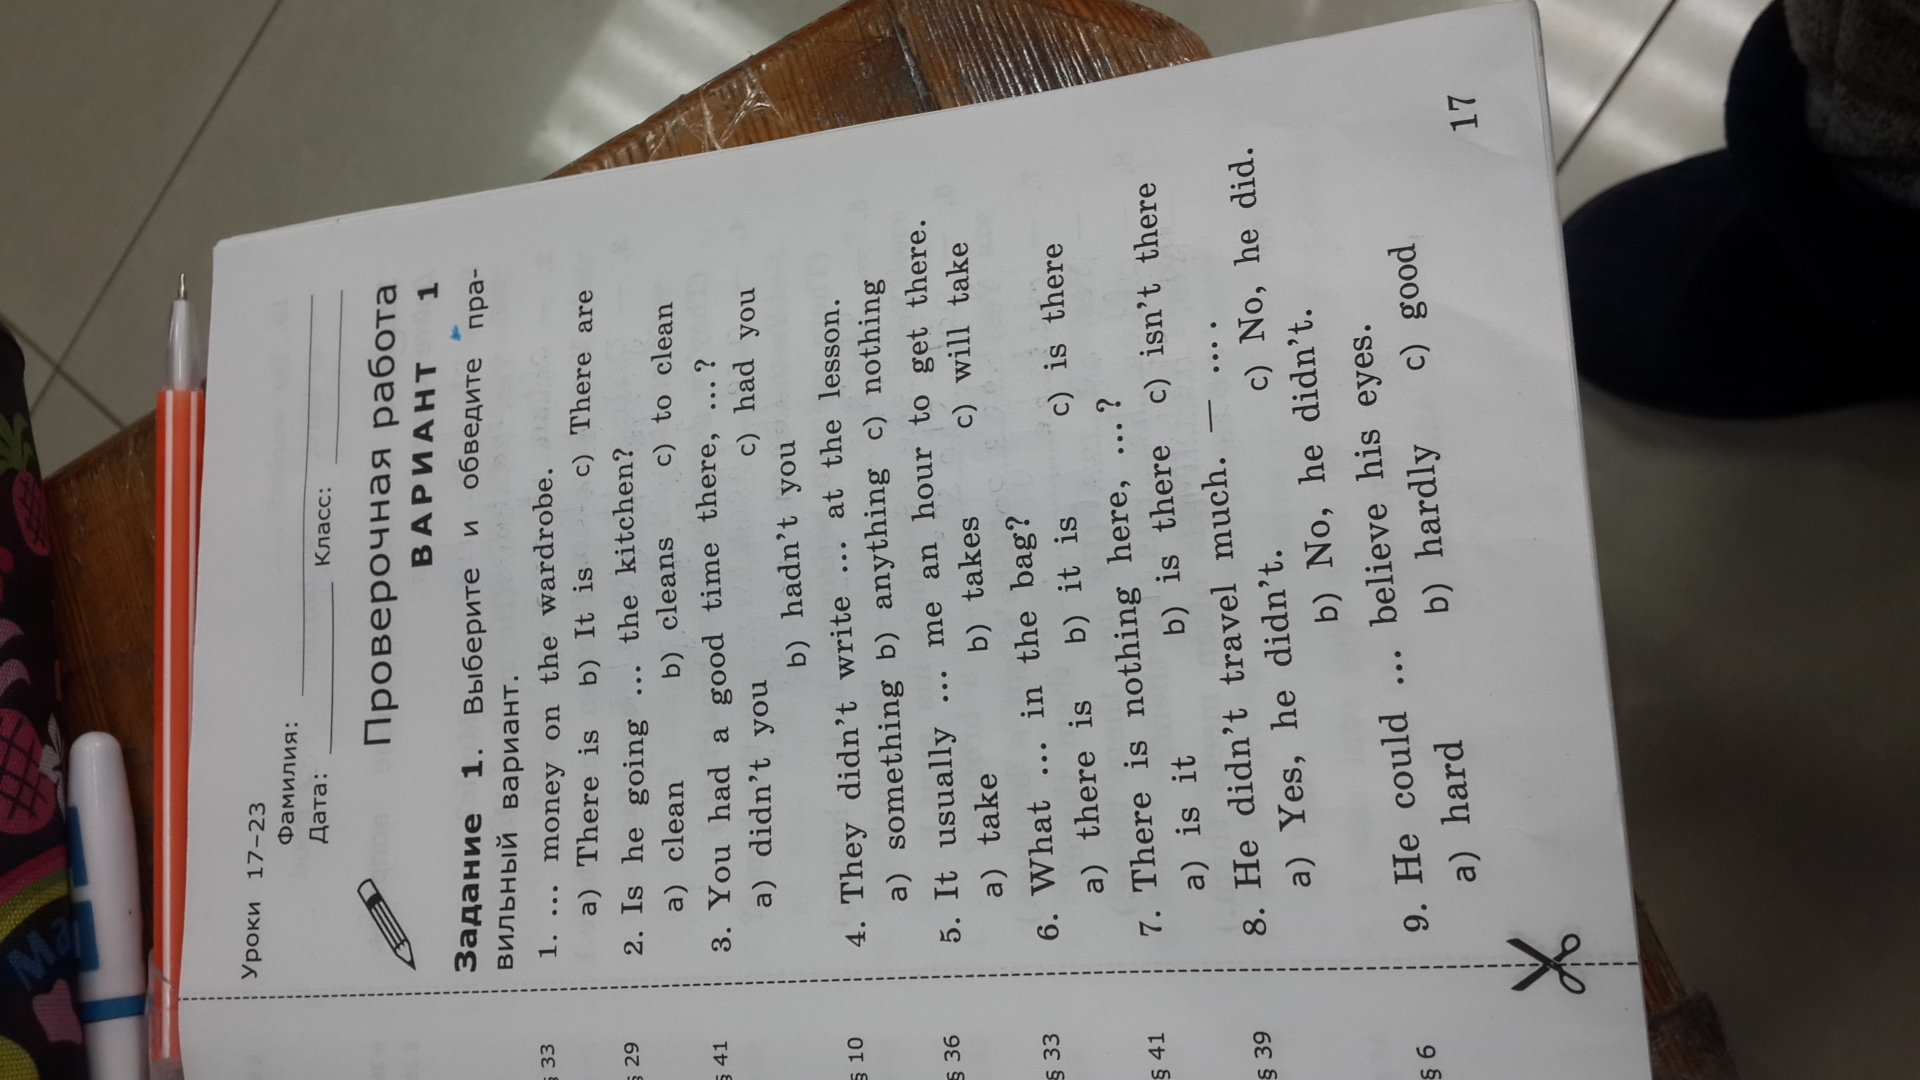 Уроки 17–23
Фамилия:
Дата: Класс:
Проверочная работа
ВАРИАНТ 1
Задание 1. Выберите и обведите пра-
вильный вариант.
1. ... money on the wardrobe.
a) There is b) It is c) There are
2. Is he going ... the kitchen?
a) clean b) cleans c) to clean
3. You had a good time there, ... ?
a) didn't you c) had you
b) hadn't you
4. They didn't write ... at the lesson.
a) something b) anything c) nothing
5. It usually ... me an hour to get there.
a) take b) takes c) will take
6. What ... in the bag?
a) there is b) it is c) is there
7. There is nothing here, ... ?
a) is it b) is there c) isn't there
8. He didn't travel much. — ... .
a) Yes, he didn't. c) No, he did.
b) No, he didn't.
9. He could ... believe his eyes.
a) hard b) hardly c) good
17
§ 33
§ 29
§ 41
§ 10
§ 36
§ 33
§ 41
§ 39
§ 6